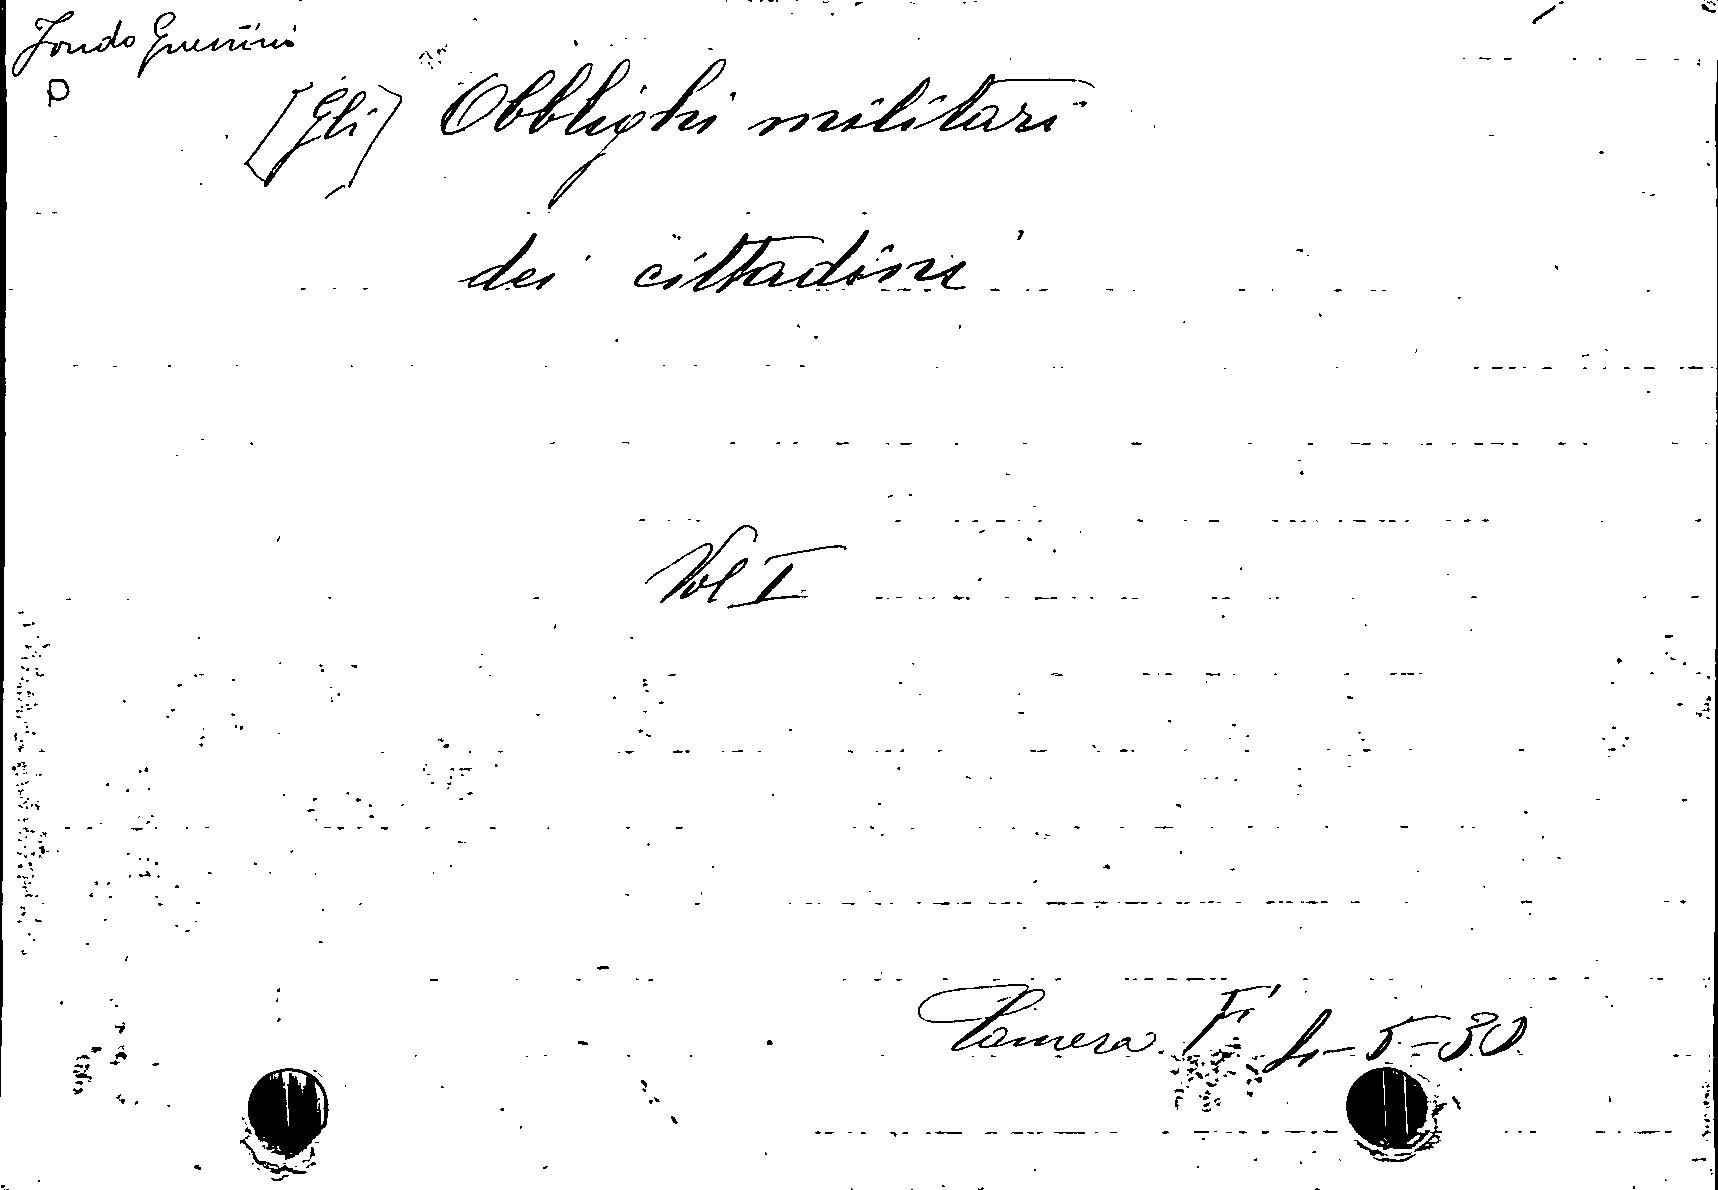 Fondo Guerrini
P
[Gli] Obblighi militari
dei cittadini
Vol I
Camera F 4-5-30